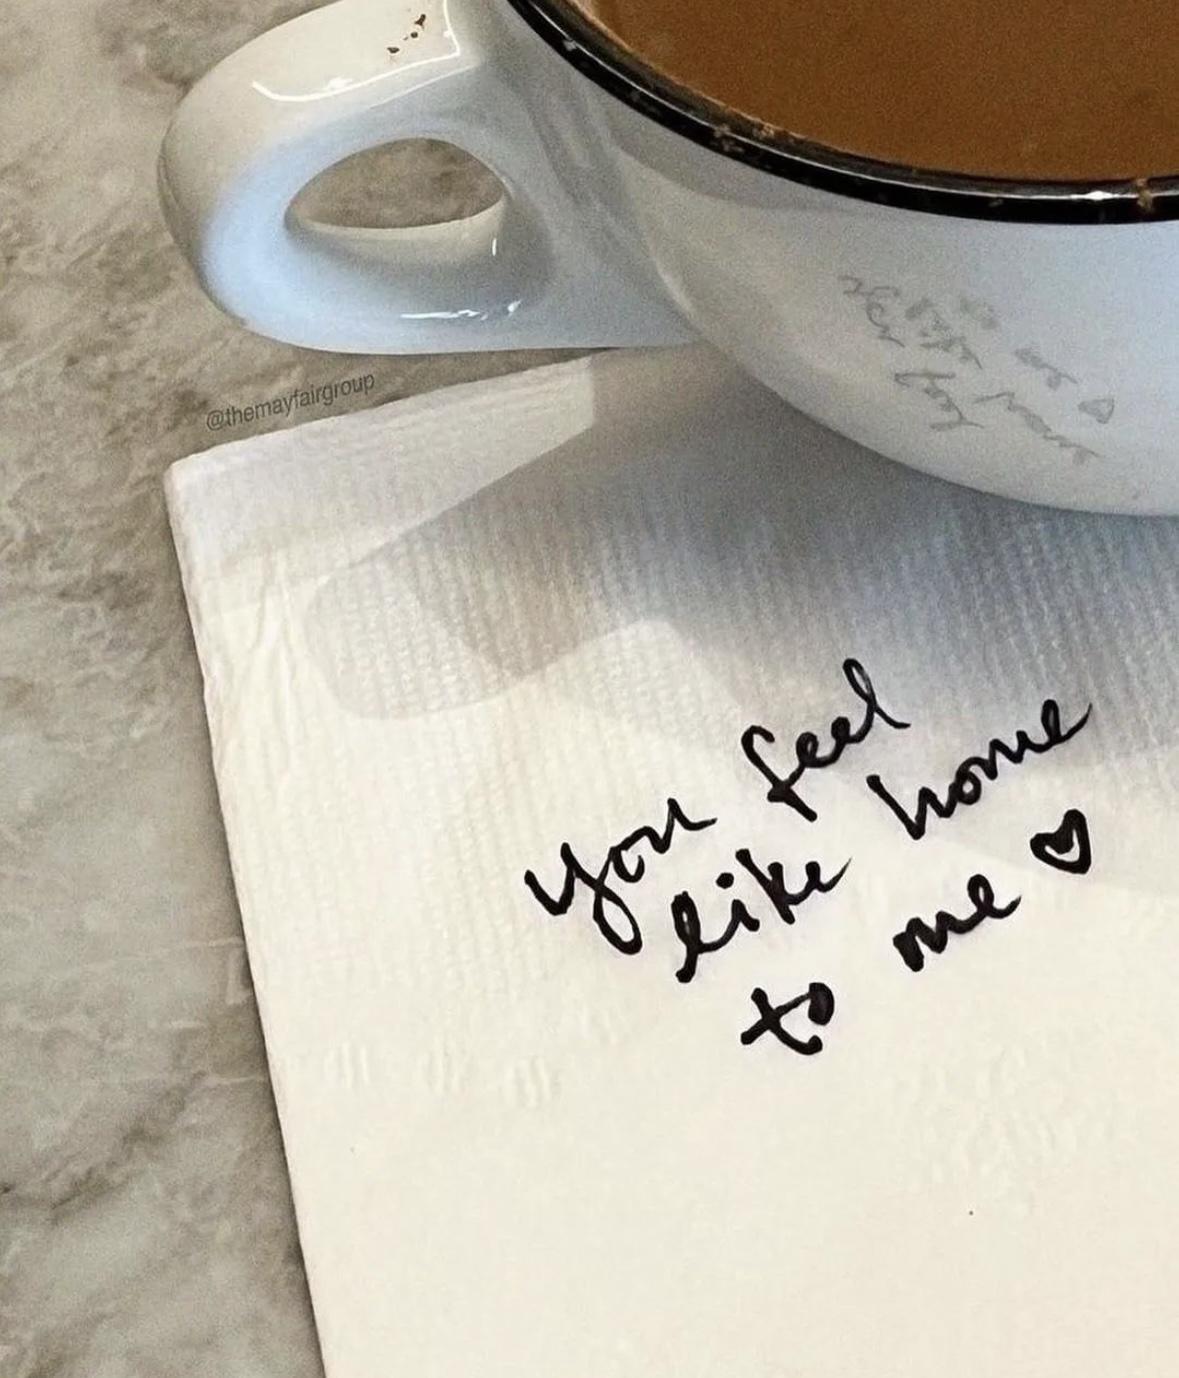 @themayfairgroup
you feel
like home
to me ♥